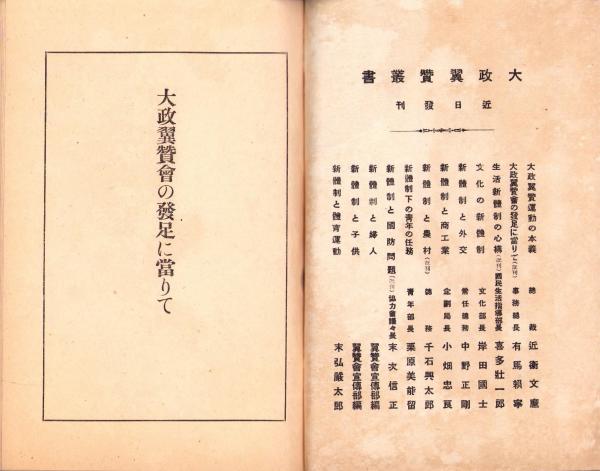 大政翼贊叢書
近日發刊
大政翼贊運動の本義 總裁 近衞文麿
大政翼贊會の發足に當りて(既刊) 事務總長 有馬頼寧
生活新體制の心構(既刊) 國民生活指導部長 喜多壯一郎
文化の新體制 文化部長 岸田國士
新體制と外交 常任總務 中野正剛
新體制と商工業 企劃局長 小畑忠良
新體制と農村(既刊) 總務 千石興太郎
新體制下の青年の任務 青年部長 栗原美能留
新體制と國防問題(既刊) 協力會議々長 末次信正
新體制と婦人 翼贊會宣傳部編
新體制と子供 翼贊會宣傳部編
新體制と體育運動 末弘嚴太郎
大政翼贊會の發足に當りて